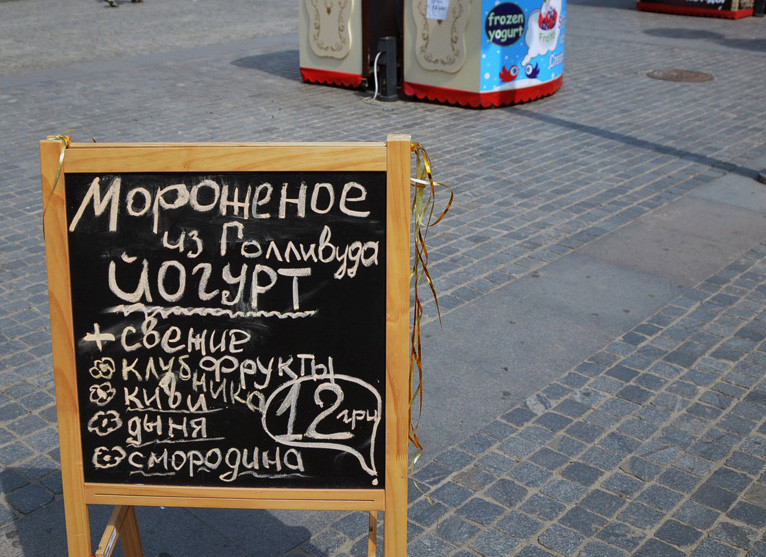 frozen
yogurt
Мороженое
из Голливуда
ЙОГУРТ
+ свежие
фрукты
клубника
киви
дыня
смородина
12 грн